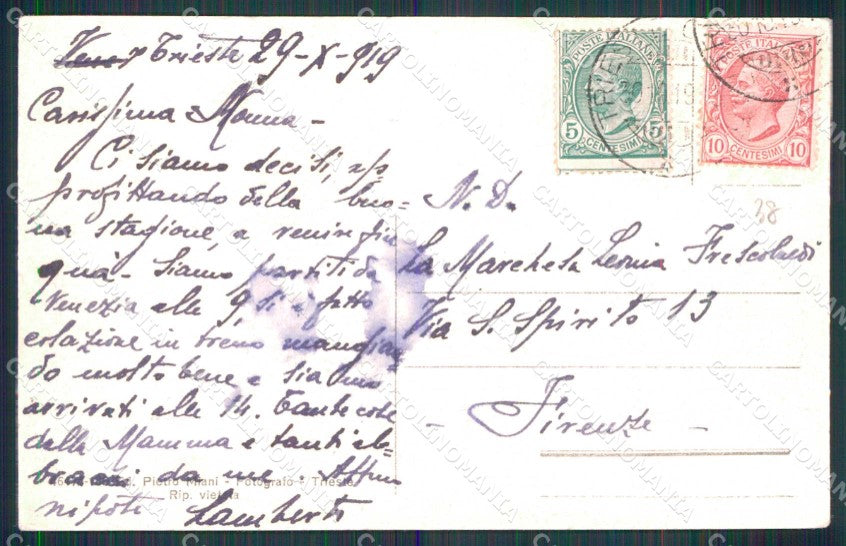 Trieste 29-X-919
Carissima Nonna -
Ci siamo decisi, ap
profittando della buo=
na stagione, a venire fin
quà - Siamo partiti da
Venezia alle 9 si è fatto
colazione in treno mangian
do molto bene e siamo
arrivati alle 14. Tante cose
dalla Mamma e tanti ab-
bracci da me. Affmo
nipote Lamberto
N. D.
La Marchesa Leonia Frescobaldi
Via S. Spirito 13
- Firenze -
POSTE ITALIANE
5 5
CENTESIMI
POSTE ITALIANE
10 10
CENTESIMI
TRIE
38
Pietro Miani - Fotografo - Trieste
Rip. vietata
CARTOLINOMANIA